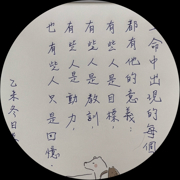 命中出現的每個
都有他的意義：
有些人是目標，
有些人是教訓，
有些人是動力，
也有些人只是回憶。
乙未冬日